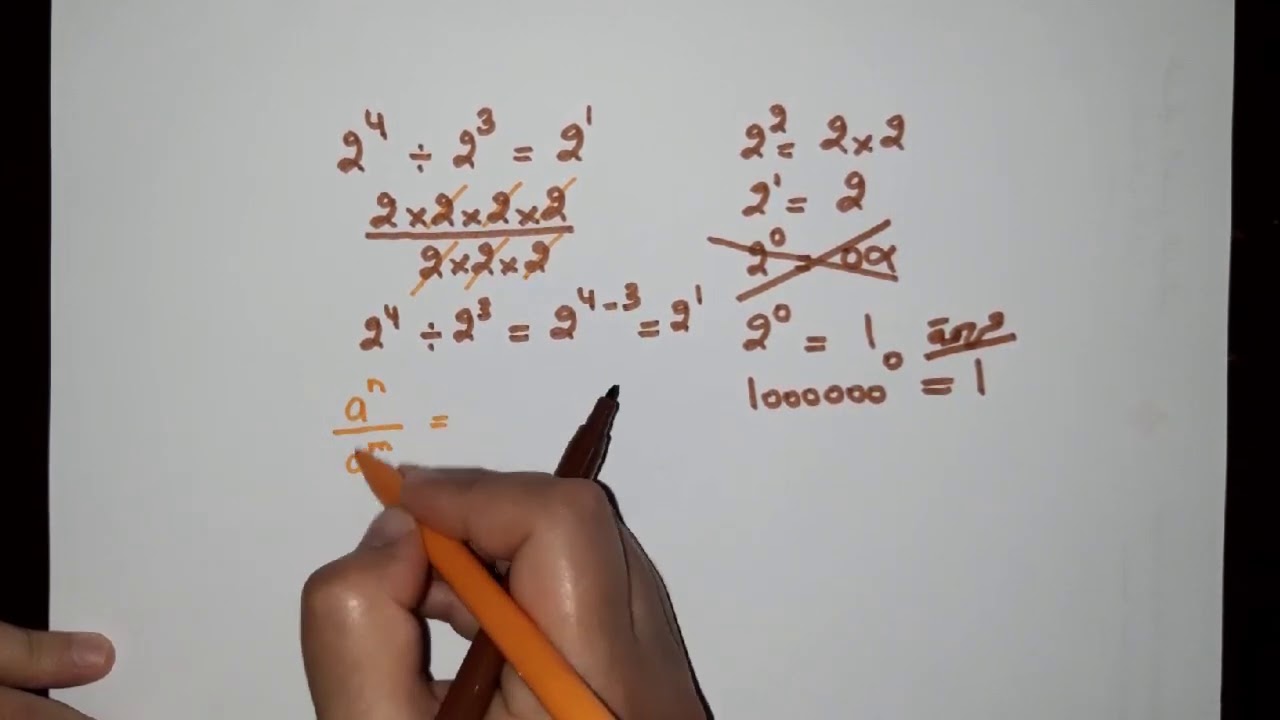 2⁴ ÷ 2³ = 2¹
2×2×2×2
2×2×2
2⁴ ÷ 2³ = 2⁴⁻³ = 2¹
aⁿ =
aᵐ
2² = 2×2
2¹ = 2
2⁰ = 0
2⁰ = 1 ans
1000000⁰ = 1